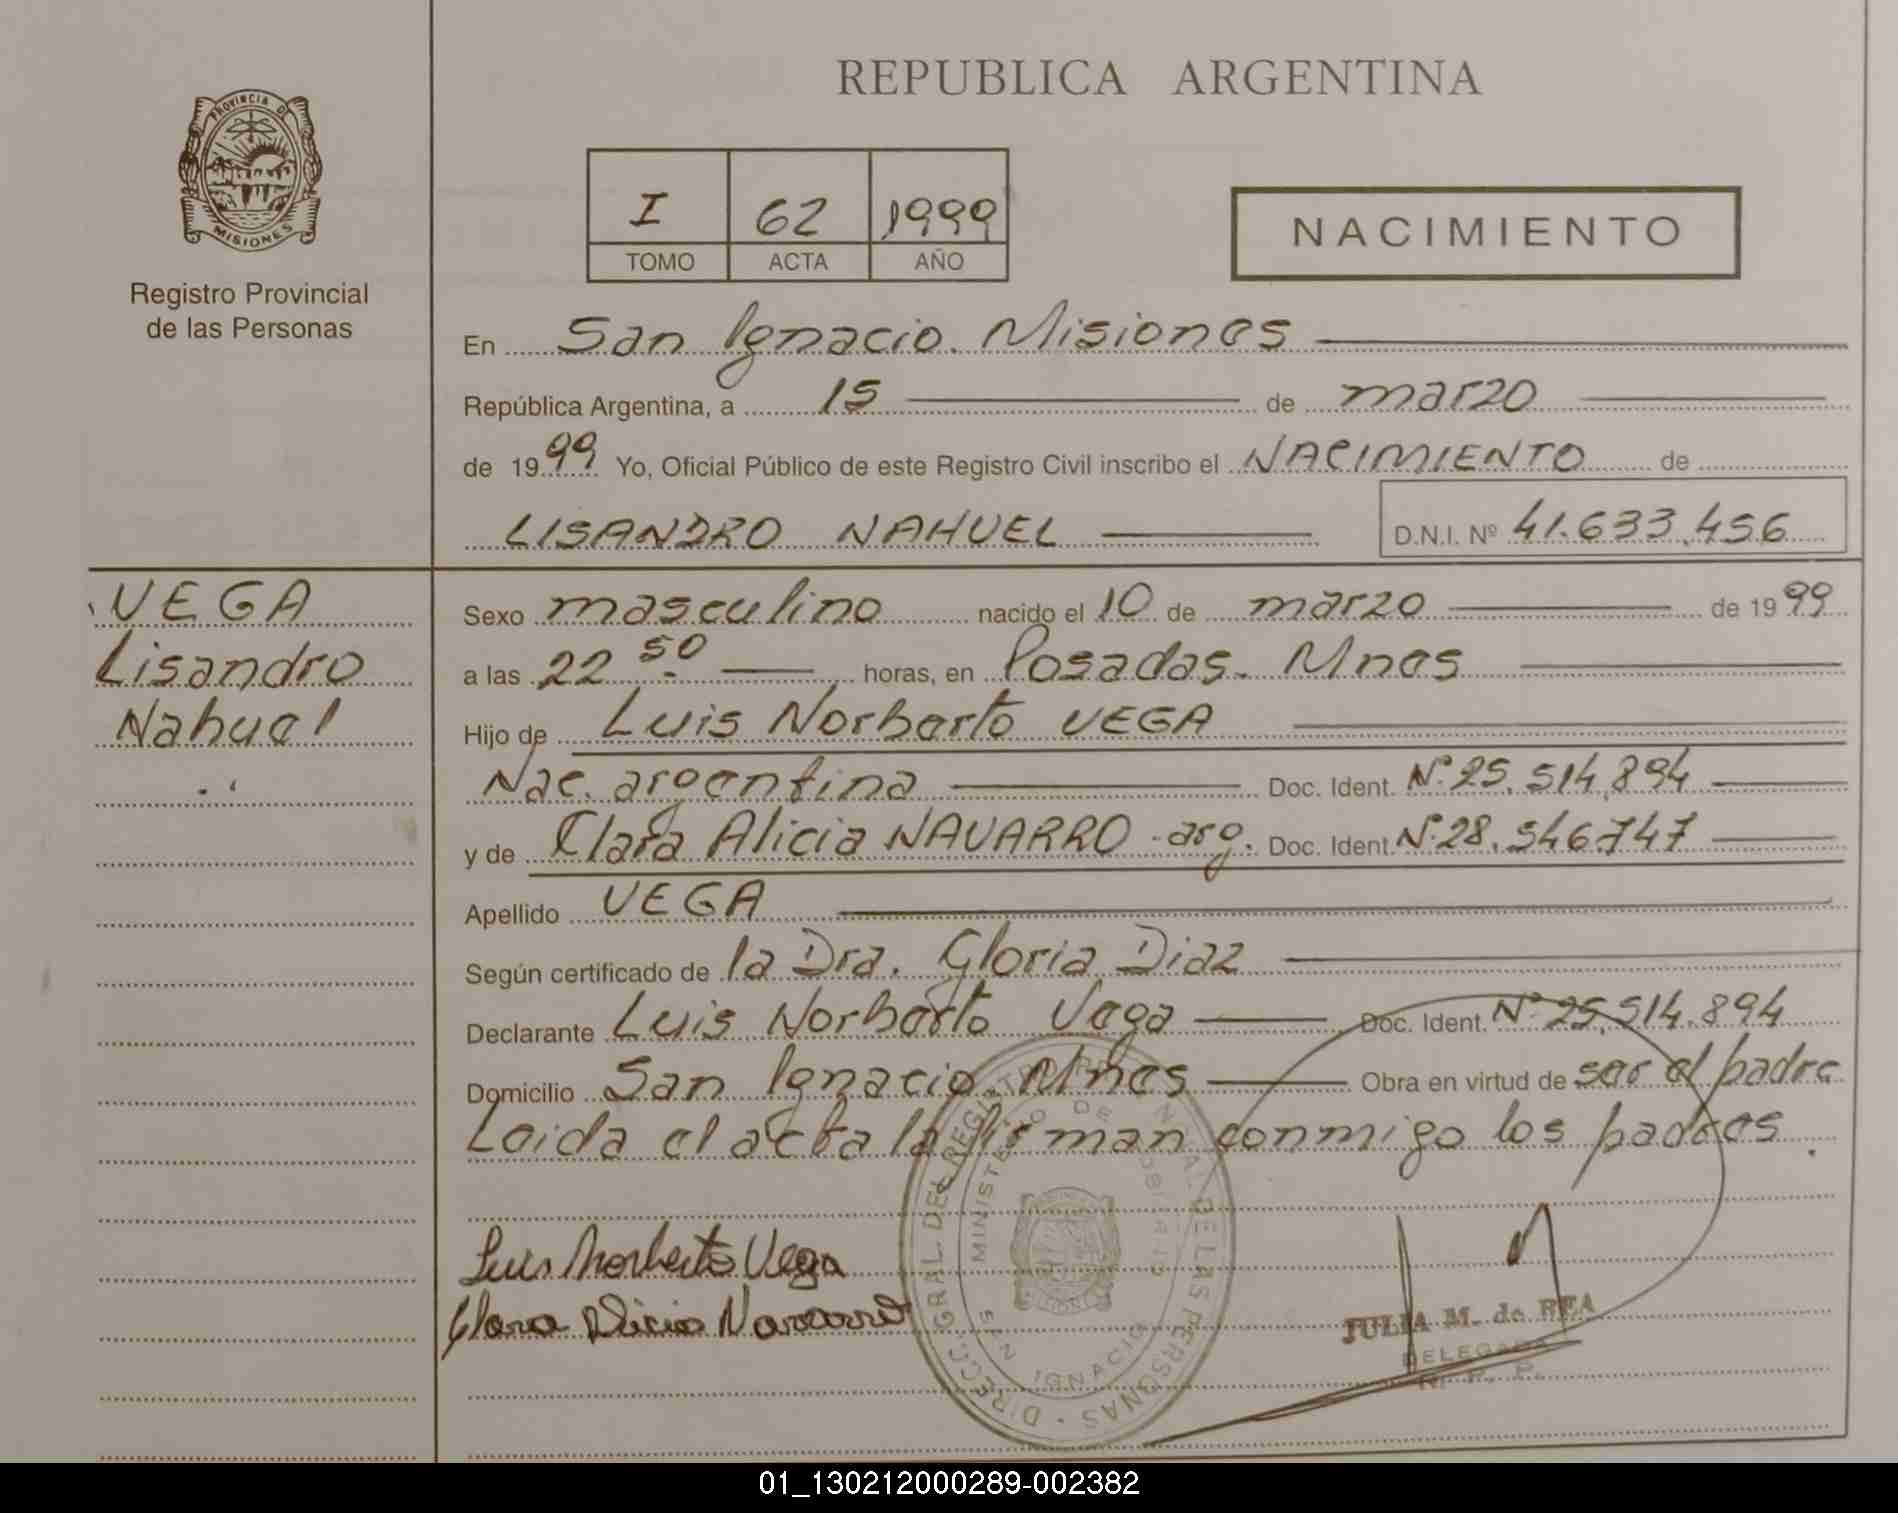 REPUBLICA ARGENTINA
PROVINCIA D
MISIONES
Registro Provincial
de las Personas
I 62 1999
TOMO ACTA AÑO
NACIMIENTO
En San Ignacio. Misiones
República Argentina, a 15 de marzo
de 1999 Yo, Oficial Público de este Registro Civil inscribo el NACIMIENTO de
LISANDRO NAHUEL D.N.I. Nº 41.633.456
VEGA
Lisandro
Nahuel
Sexo masculino nacido el 10 de marzo de 1999
a las 22 50 horas, en Posadas. Mnes
Hijo de Luis Norberto VEGA
Nac. argentina Doc. Ident. Nº 25.514.894
y de Clara Alicia NAVARRO - arg. Doc. Ident. Nº 28.546.747
Apellido VEGA
Según certificado de la Dra. Gloria Diaz
Declarante Luis Norberto Vega Doc. Ident. Nº 25.514.894
Domicilio San Ignacio. Mnes Obra en virtud de ser el padre
Leida el acta la firman conmigo los padres.
Luis Norberto Vega
Clara Alicia Navarro
DIRECC. GRAL. DEL REGISTRO PROVINCIAL DE LAS PERSONAS
MINISTERIO DE GOBIERNO
SAN IGNACIO
JULIA M. de REA
DELEGADA
R. P. P.
01_130212000289-002382